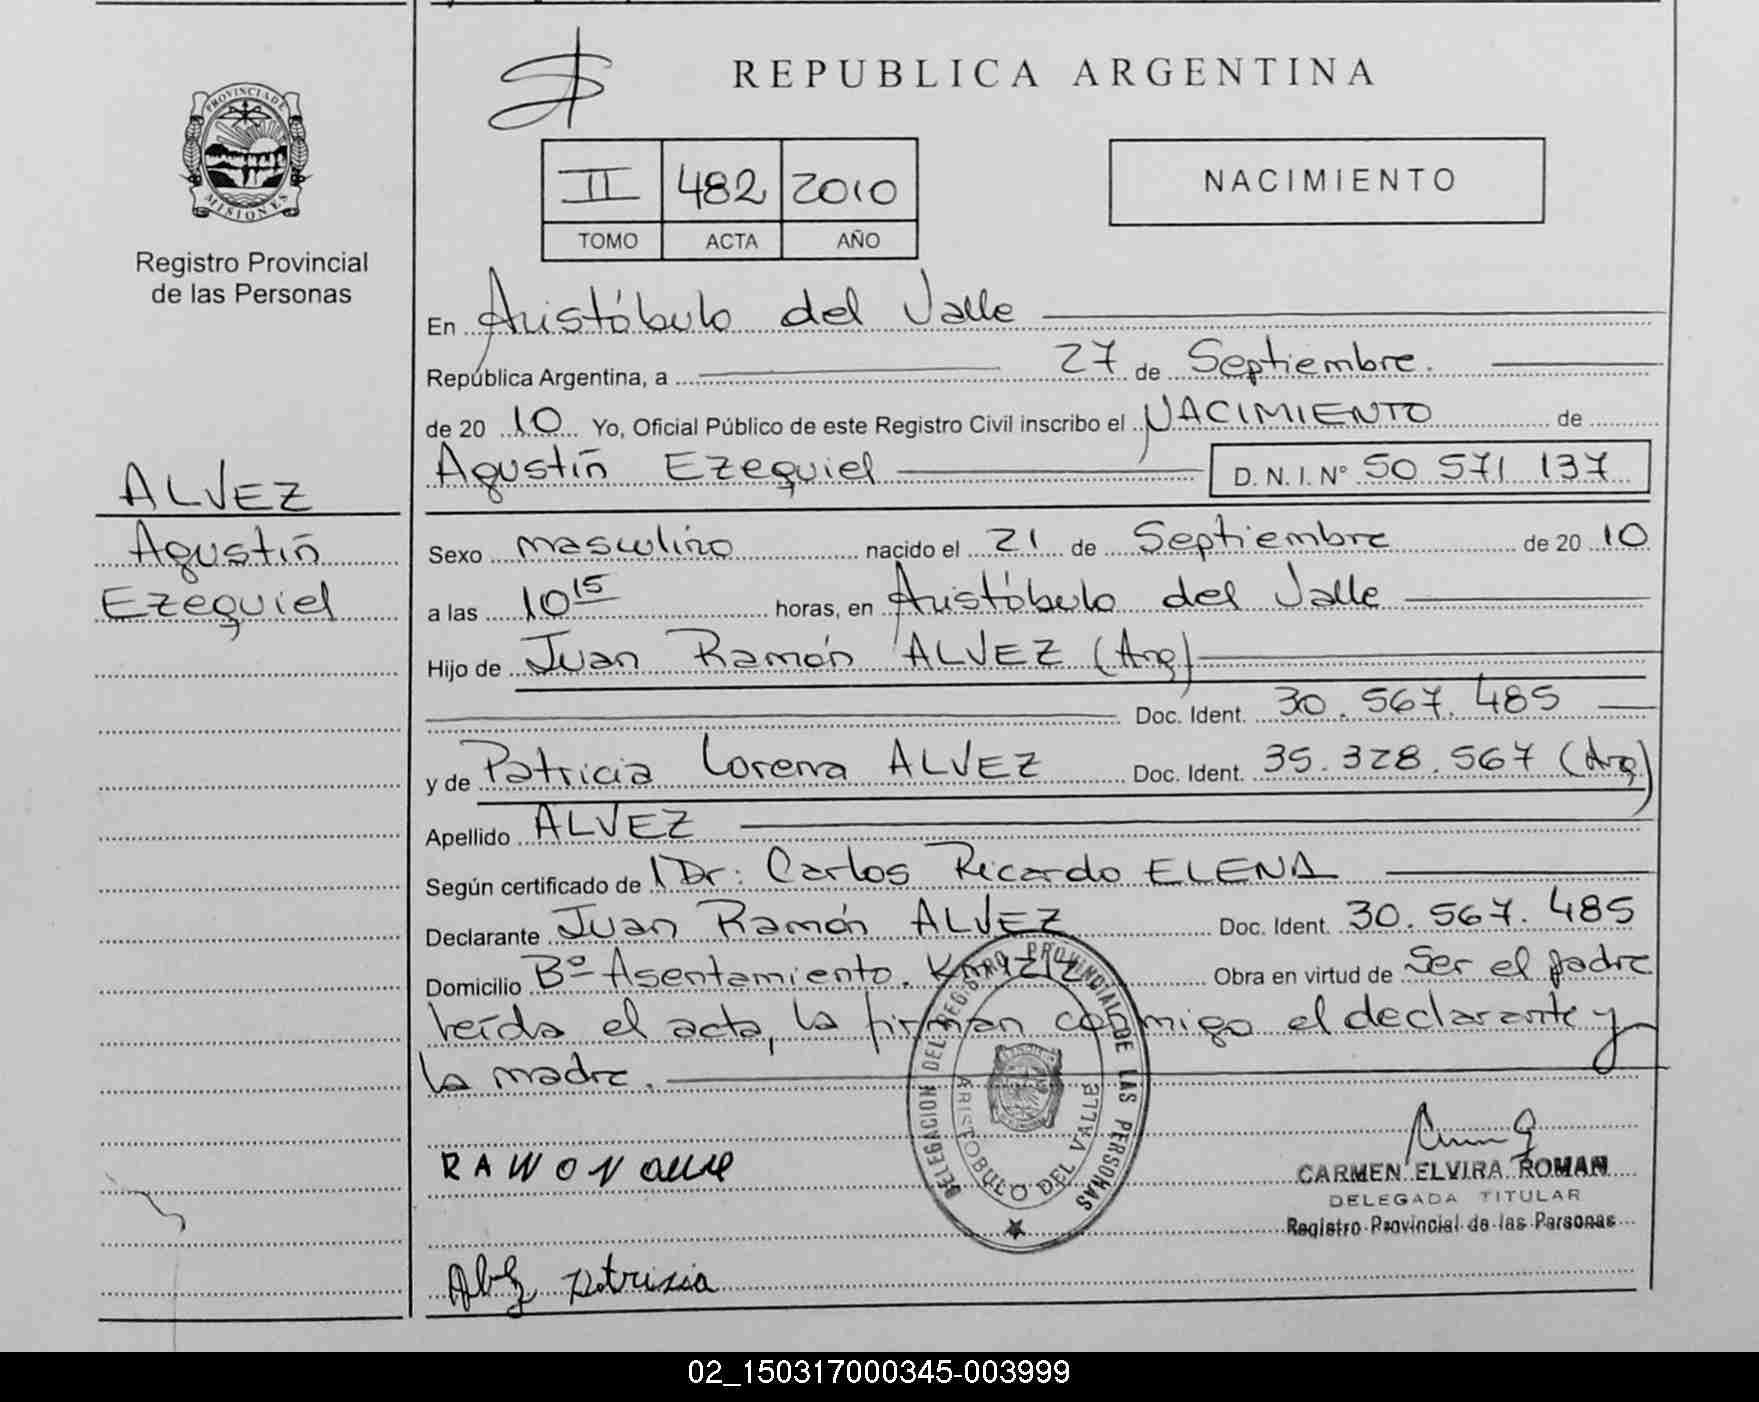 REPUBLICA ARGENTINA
PROVINCIA DE MISIONES
Registro Provincial
de las Personas
II 482 2010
TOMO ACTA AÑO
NACIMIENTO
En Aristóbulo del Valle
República Argentina, a 27 de Septiembre.
de 20 10 Yo, Oficial Público de este Registro Civil inscribo el NACIMIENTO de
Agustín Ezequiel D. N. I. N° 50 571 137
ALVEZ
Agustín
Ezequiel
Sexo masculino nacido el 21 de Septiembre de 20 10
a las 10 15 horas, en Aristóbulo del Valle
Hijo de Juan Ramón ALVEZ (Arg)
Doc. Ident. 30.567.485
y de Patricia Lorena ALVEZ Doc. Ident. 35.328.567 (Arg)
Apellido ALVEZ
Según certificado de Dr: Carlos Ricardo ELENA
Declarante Juan Ramón ALVEZ Doc. Ident. 30.567.485
Domicilio Bº Asentamiento. Obra en virtud de Ser el padre
leída el acta, la firman conmigo el declarante y
la madre.
DELEGACION DEL REGISTRO PROVINCIAL DE LAS PERSONAS
ARISTOBULO DEL VALLE
RAMON
CARMEN ELVIRA ROMAN
DELEGADA TITULAR
Registro Provincial de las Personas
Patrisia
02_150317000345-003999